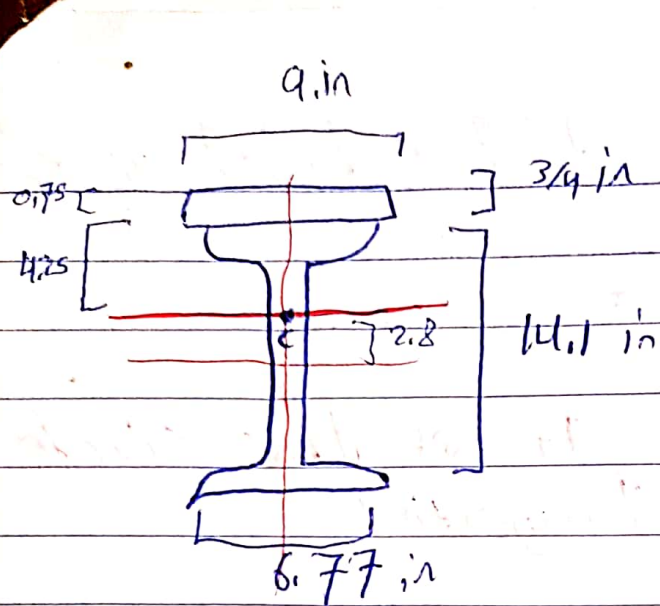 9.in
0.75
3/4 in
4.25
c
2.8
14.1 in
6.77 in